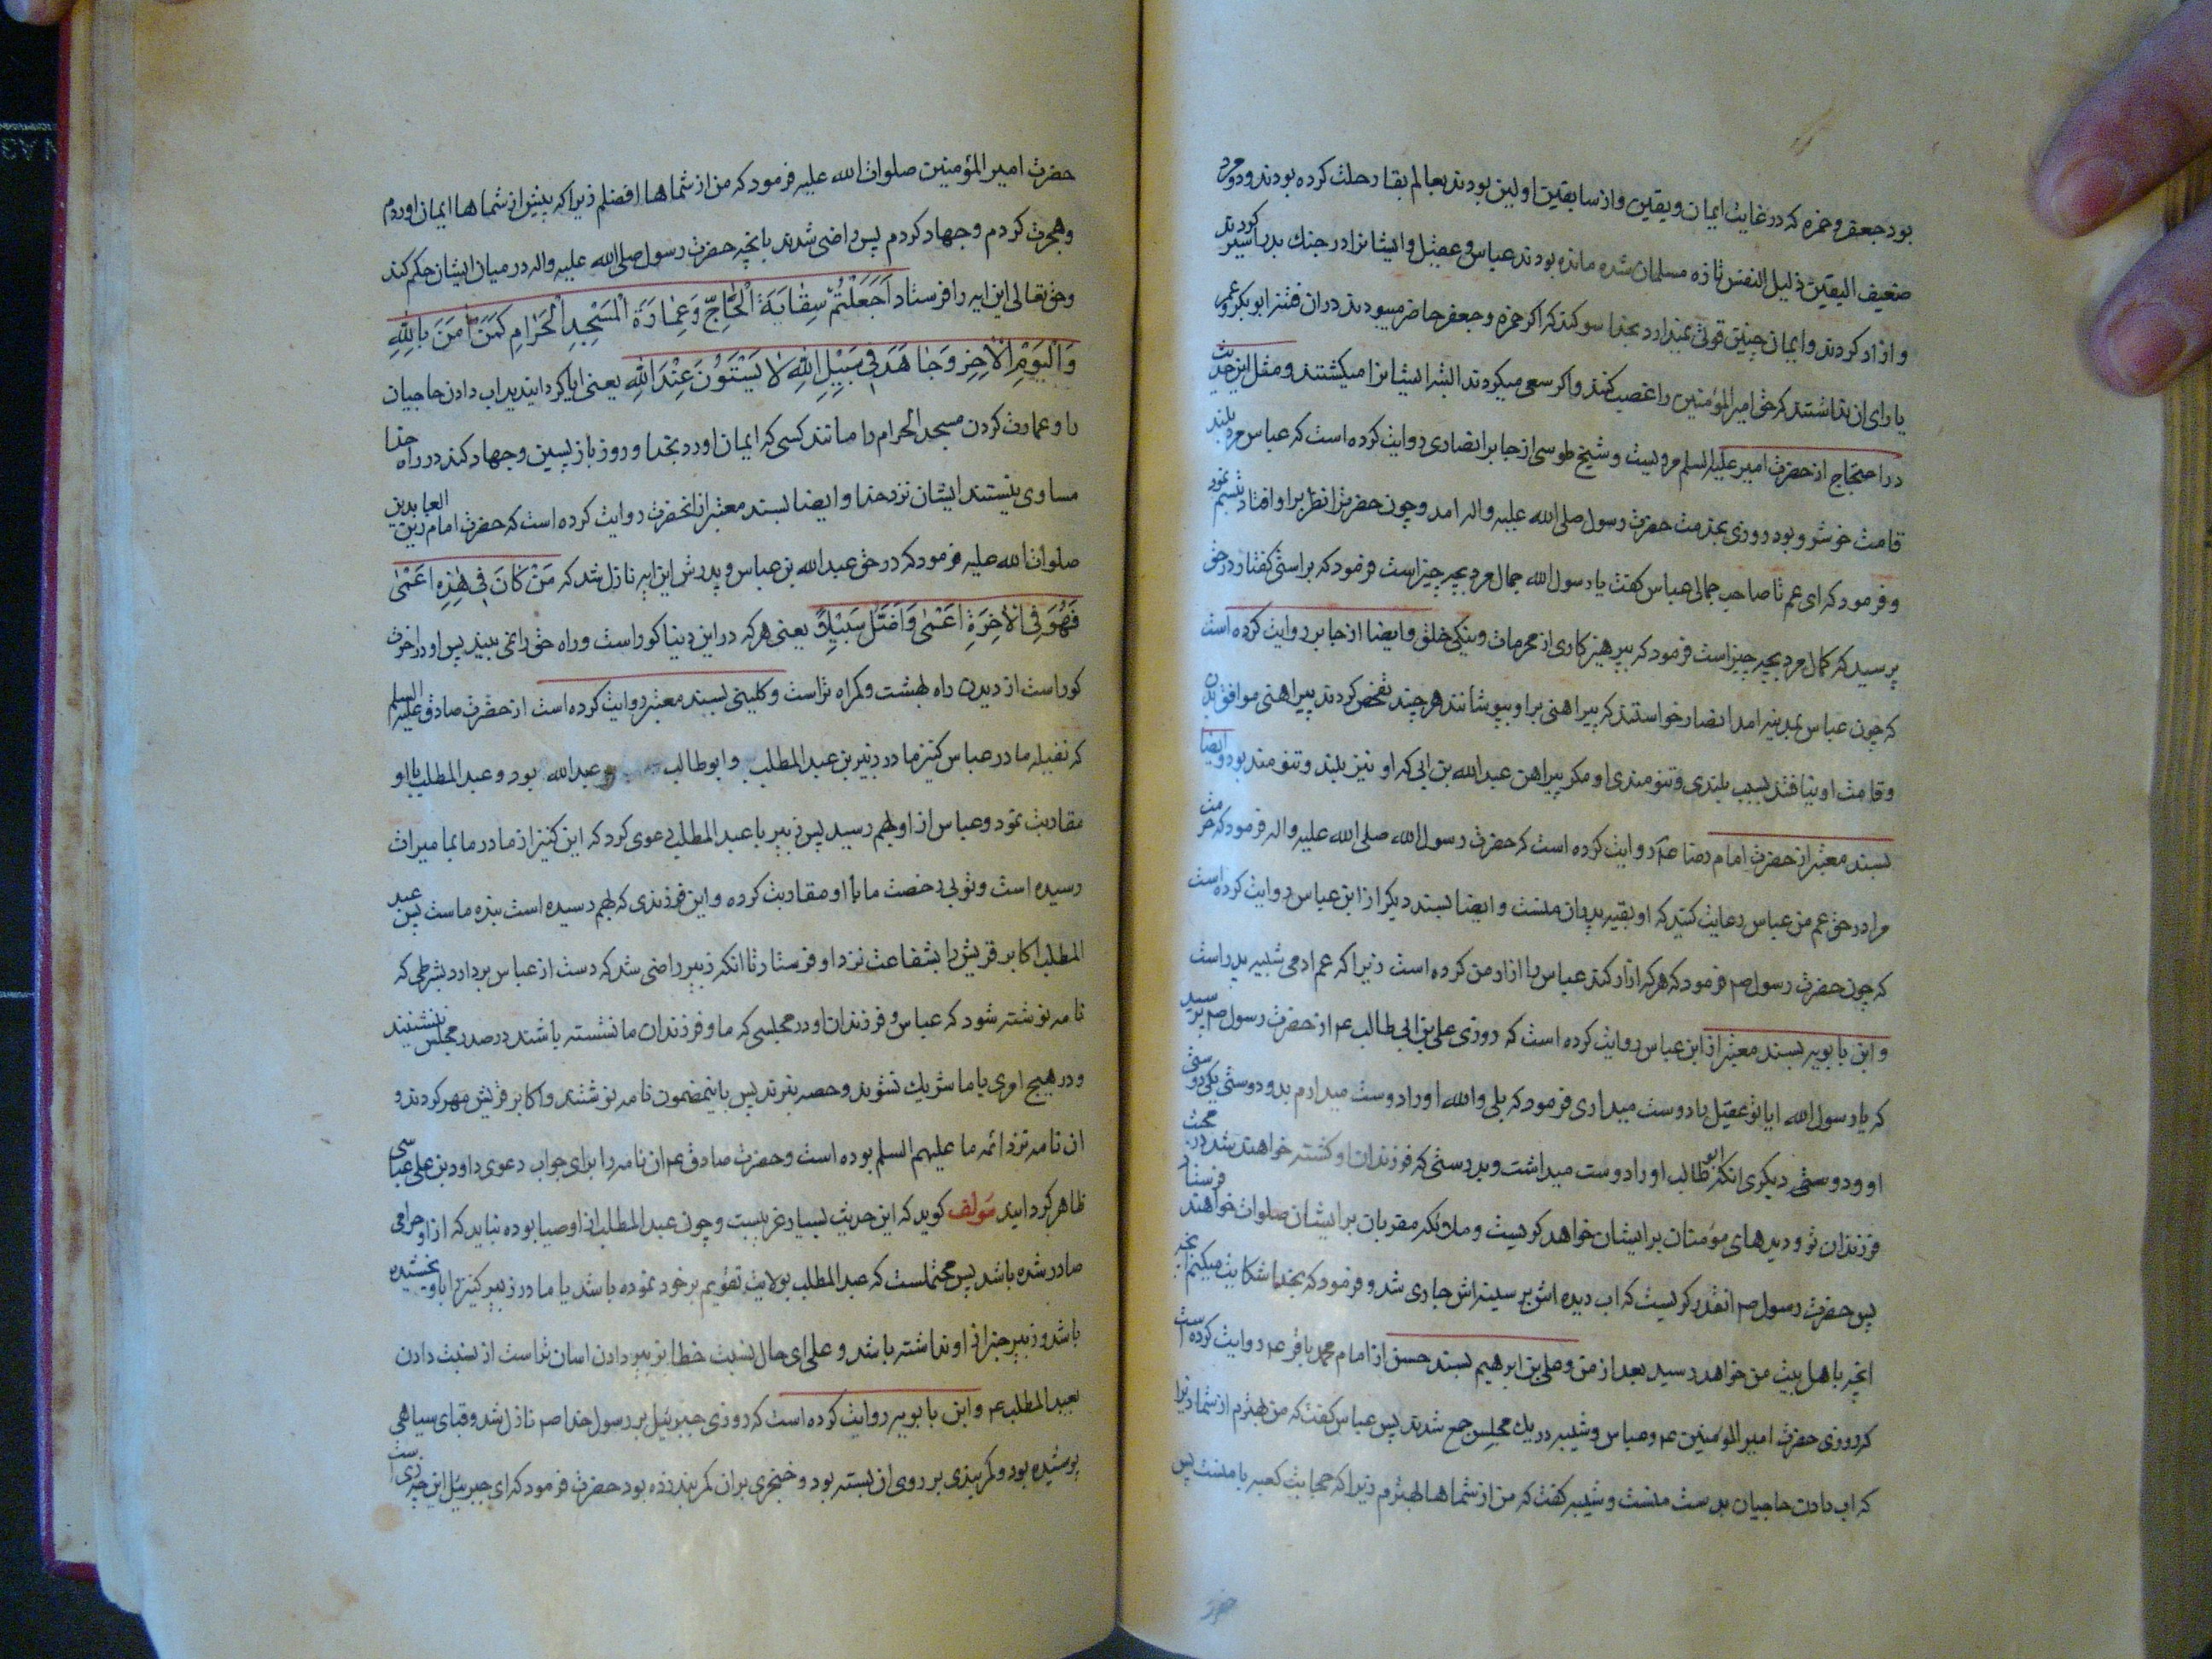 بود جعفر و حمزه که در غایت ایمان و یقین و از سابقین اولین بودند بعالم بقا رحلت کرده بودند و دو مرد
ضعیف الیقین ذلیل النفس تازه مسلمان شده مانده بودند عباس و عقیل و ایشانرا در جنك بدر اسیر کردند
و ازاد کردند و ایمان چنین قوتی نمیدارد بخدا سوکند که اکر حمزه و جعفر حاضر میبودند دران فتنه ابوبکر و عمر
یارای ان نداشتند که حق امیر المؤمنین را غصب کنند و اکر سعی میکردند البته ایشانرا میکشتند و مثل این حدیث
در احتجاج از حضرت امیر علیه السلم مرویست و شیخ طوسی از جابر انصاری روایت کرده است که عباس مرد بلند
قامت خوشرو بود روزی بخدمت حضرت رسول صلی الله علیه واله امد و چون حضرت را نظر بر او افتاد تبسم نمود
و فرمود که ای عم تا صاحب جمالی عباس کفت یا رسول الله جمال مرد بچه چیز است فرمود که براستی کفتار در حق
پرسید که کمال مرد بچه چیز است فرمود که بپرهیزکاری از محرمات و نیکی خلق و ایضا از جابر روایت کرده است
که چون عباس بمدینه امد انصار خواستند که پیراهنی بر او بپوشانند هر چند تفحص کردند پیراهنی موافق بدن
و قامت او نیافتند بسبب بلندی و تنومندی او مکر پیراهن عبدالله بن ابی که او نیز بلند و تنومند بود و ایضا
بسند معتبر از حضرت امام رضا ع روایت کرده است که حضرت رسول الله صلی الله علیه واله فرمود که حرمت
مرا در حق عم من عباس رعایت کنید که او بقیه پدران منست و ایضا بسند دیکر از ابن عباس روایت کرده است
که چون حضرت رسول ص فرمود که هر که ازار کند عباس را ازار من کرده است زیرا که عم ادمی شبیه پدر است
و ابن بابویه بسند معتبر از ابن عباس روایت کرده است که روزی علی بن ابی طالب ع از حضرت رسول ص پرسید
که یا رسول الله ایا تو عقیل را دوست میداری فرمود که بلی والله او را دوست میدارم بدو دوستی یکی دوستی
او و دوستی دیکری انکه ابو طالب او را دوست میداشت و بدرستی که فرزندان او کشته خواهند شد در محبت
فرزندان تو و دیدهای مؤمنان بر ایشان خواهد کریست و ملائکه مقربان بر ایشان صلوات خواهند فرستاد
پس حضرت رسول ص انقدر کریست که اب دیده اش بر سینه اش جاری شد و فرمود که بخدا شکایت میکنم انچه
انچه باهل بیت من خواهد رسید بعد از من و علی بن ابرهیم بسند حسن از امام محمد باقر ع روایت کرده است
که روزی حضرت امیر المؤمنین ع و عباس و شیبه در یك مجلس جمع شدند پس عباس کفت که من بهترم از شما زیرا
که اب دادن حاجیان بدست منست و شیبه کفت که من از شماها بهترم زیرا که حجابت کعبه با منست پس
حضرت امیر المؤمنین صلوات الله علیه فرمود که من از شماها افضلم زیرا که پیش از شماها ایمان اوردم
و هجرت کردم و جهاد کردم پس راضی شدند بانچه حضرت رسول صلی الله علیه واله در میان ایشان حکم کند
و حق تعالی این ایه را فرستاد اَجَعَلْتُمْ سِقٰایَةَ الْحٰاجِّ وَعِمٰارَةَ الْمَسْجِدِ الْحَرٰامِ کَمَنْ اٰمَنَ بِاللّٰهِ
وَالْیَوْمِ الْاٰخِرِ وَجٰاهَدَ فِی سَبِیْلِ اللّٰهِ لٰا یَسْتَوُوْنَ عِنْدَ اللّٰهِ یعنی ایا کردانیدید اب دادن حاجیان
را و عمارت کردن مسجد الحرام را مانند کسی که ایمان اورد بخدا و روز بازپسین و جهاد کند در راه خدا
مساوی نیستند ایشان نزد خدا و ایضا بسند معتبر از انحضرت روایت کرده است که حضرت امام زین العابدین
صلوات الله علیه فرمود که در حق عبد الله بن عباس و پدرش این ایه نازل شد که مَنْ کٰانَ فِی هٰذِهِ اَعْمٰی
فَهُوَ فِی الْاٰخِرَةِ اَعْمٰی وَاَضَلُّ سَبِیْلاً یعنی هر که در این دنیا کور است و راه حق را نمی بیند پس او در اخرت
کور است از دیدن راه بهشت و کمراه تر است و کلینی بسند معتبر روایت کرده است از حضرت صادق علیه السلم
که نفیله مادر عباس کنیز مادر زبیر بن عبد المطلب و ابوطالب و عبدالله بود و عبد المطلب با او
مقاربت نمود و عباس از او بهم رسید پس زبیر با عبد المطلب دعوی کرد که این کنیز از مادر ما بما میراث
رسیده است و تو بی رخصت ما با او مقاربت کرده و این فرزندی که بهم رسیده است بنده ماست پس عبد
المطلب اکابر قریش را بشفاعت نزد او فرستاد تا انکه زبیر راضی شد که دست از عباس بردارد بشرطی که
نامه نوشته شود که عباس و فرزندان او در مجلسی که ما و فرزندان ما نشسته باشند در صدر مجلس ننشینند
و در هیچ امری با ما شریك نشوند و حصه نبرند پس باینمضمون نامه نوشتند و اکابر قریش مهر کردند و
ان نامه نزد ائمه ما علیهم السلم بوده است و حضرت صادق ع ان نامه را برای جواب دعوی داود بن علی عباسی
ظاهر کردانید مؤلف کوید که این حدیث بسیار غریبست و چون عبد المطلب از اوصیا بوده نباید که از او حرامی
صادر شده باشد پس محتملست که عبد المطلب بولایت تقویم بر خود نموده باشد یا مادر زبیر کنیز را باو بخشیده
باشد و زبیر خبر از او نداشته باشد و علی ای حال نسبت خطا بزبیر دادن اسان تر است از نسبت دادن
بعبد المطلب ع و ابن بابویه روایت کرده است که روزی جبرئیل بر رسول خدا ص نازل شد و قبای سیاهی
پوشیده بود و کمربندی بر روی ان بسته بود و خنجری بران کمربند زده بود حضرت فرمود که ای جبرئیل این چه زی است